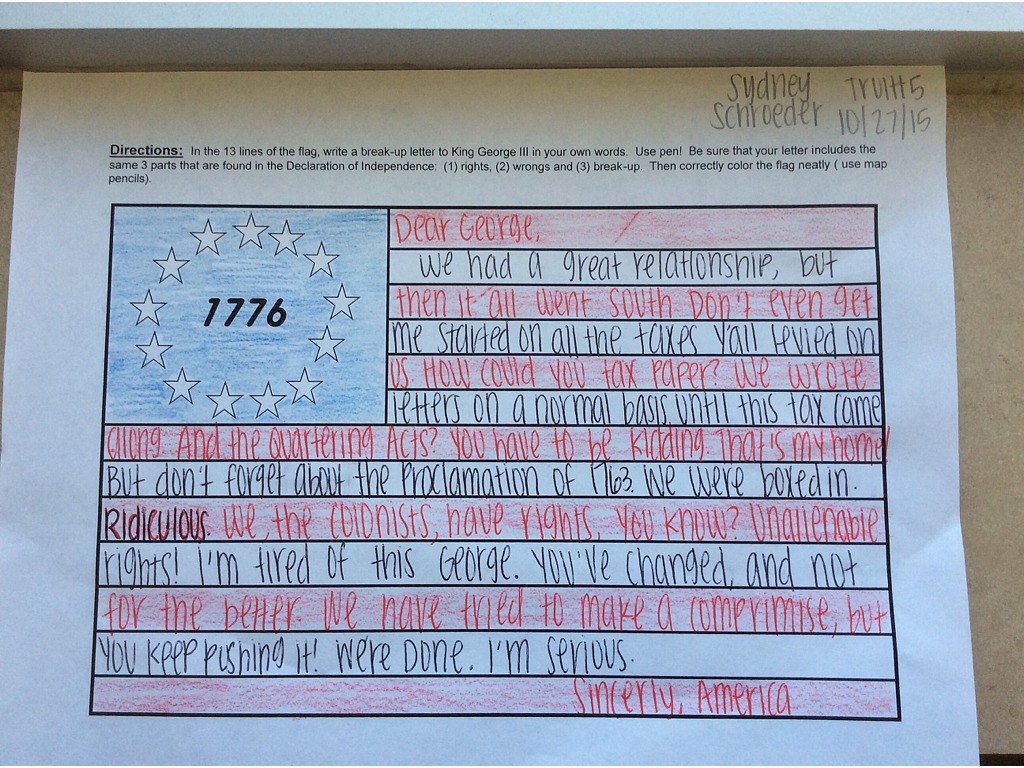 Sydney Truitt 5
Schroeder 10/27/15
Directions: In the 13 lines of the flag, write a break-up letter to King George III in your own words. Use pen! Be sure that your letter includes the
same 3 parts that are found in the Declaration of Independence: (1) rights, (2) wrongs and (3) break-up. Then correctly color the flag neatly ( use map
pencils).
1776
Dear George,
We had a great relationship, but
then it all went south Don't even get
me started on all the taxes y'all levied on
us How could you tax paper? We wrote
letters on a normal basis until this tax came
along. And the Quartering Acts? You have to be kidding. That is my home!
But don't forget about the Proclamation of 1763. We were boxed in.
Ridiculous. We, the colonists, have rights, you know? Unalienable
rights! I'm tired of this George. You've changed, and not
for the better. We have tried to make a comprimise, but
you keep pushing it! We're Done. I'm serious.
Sincerly, America